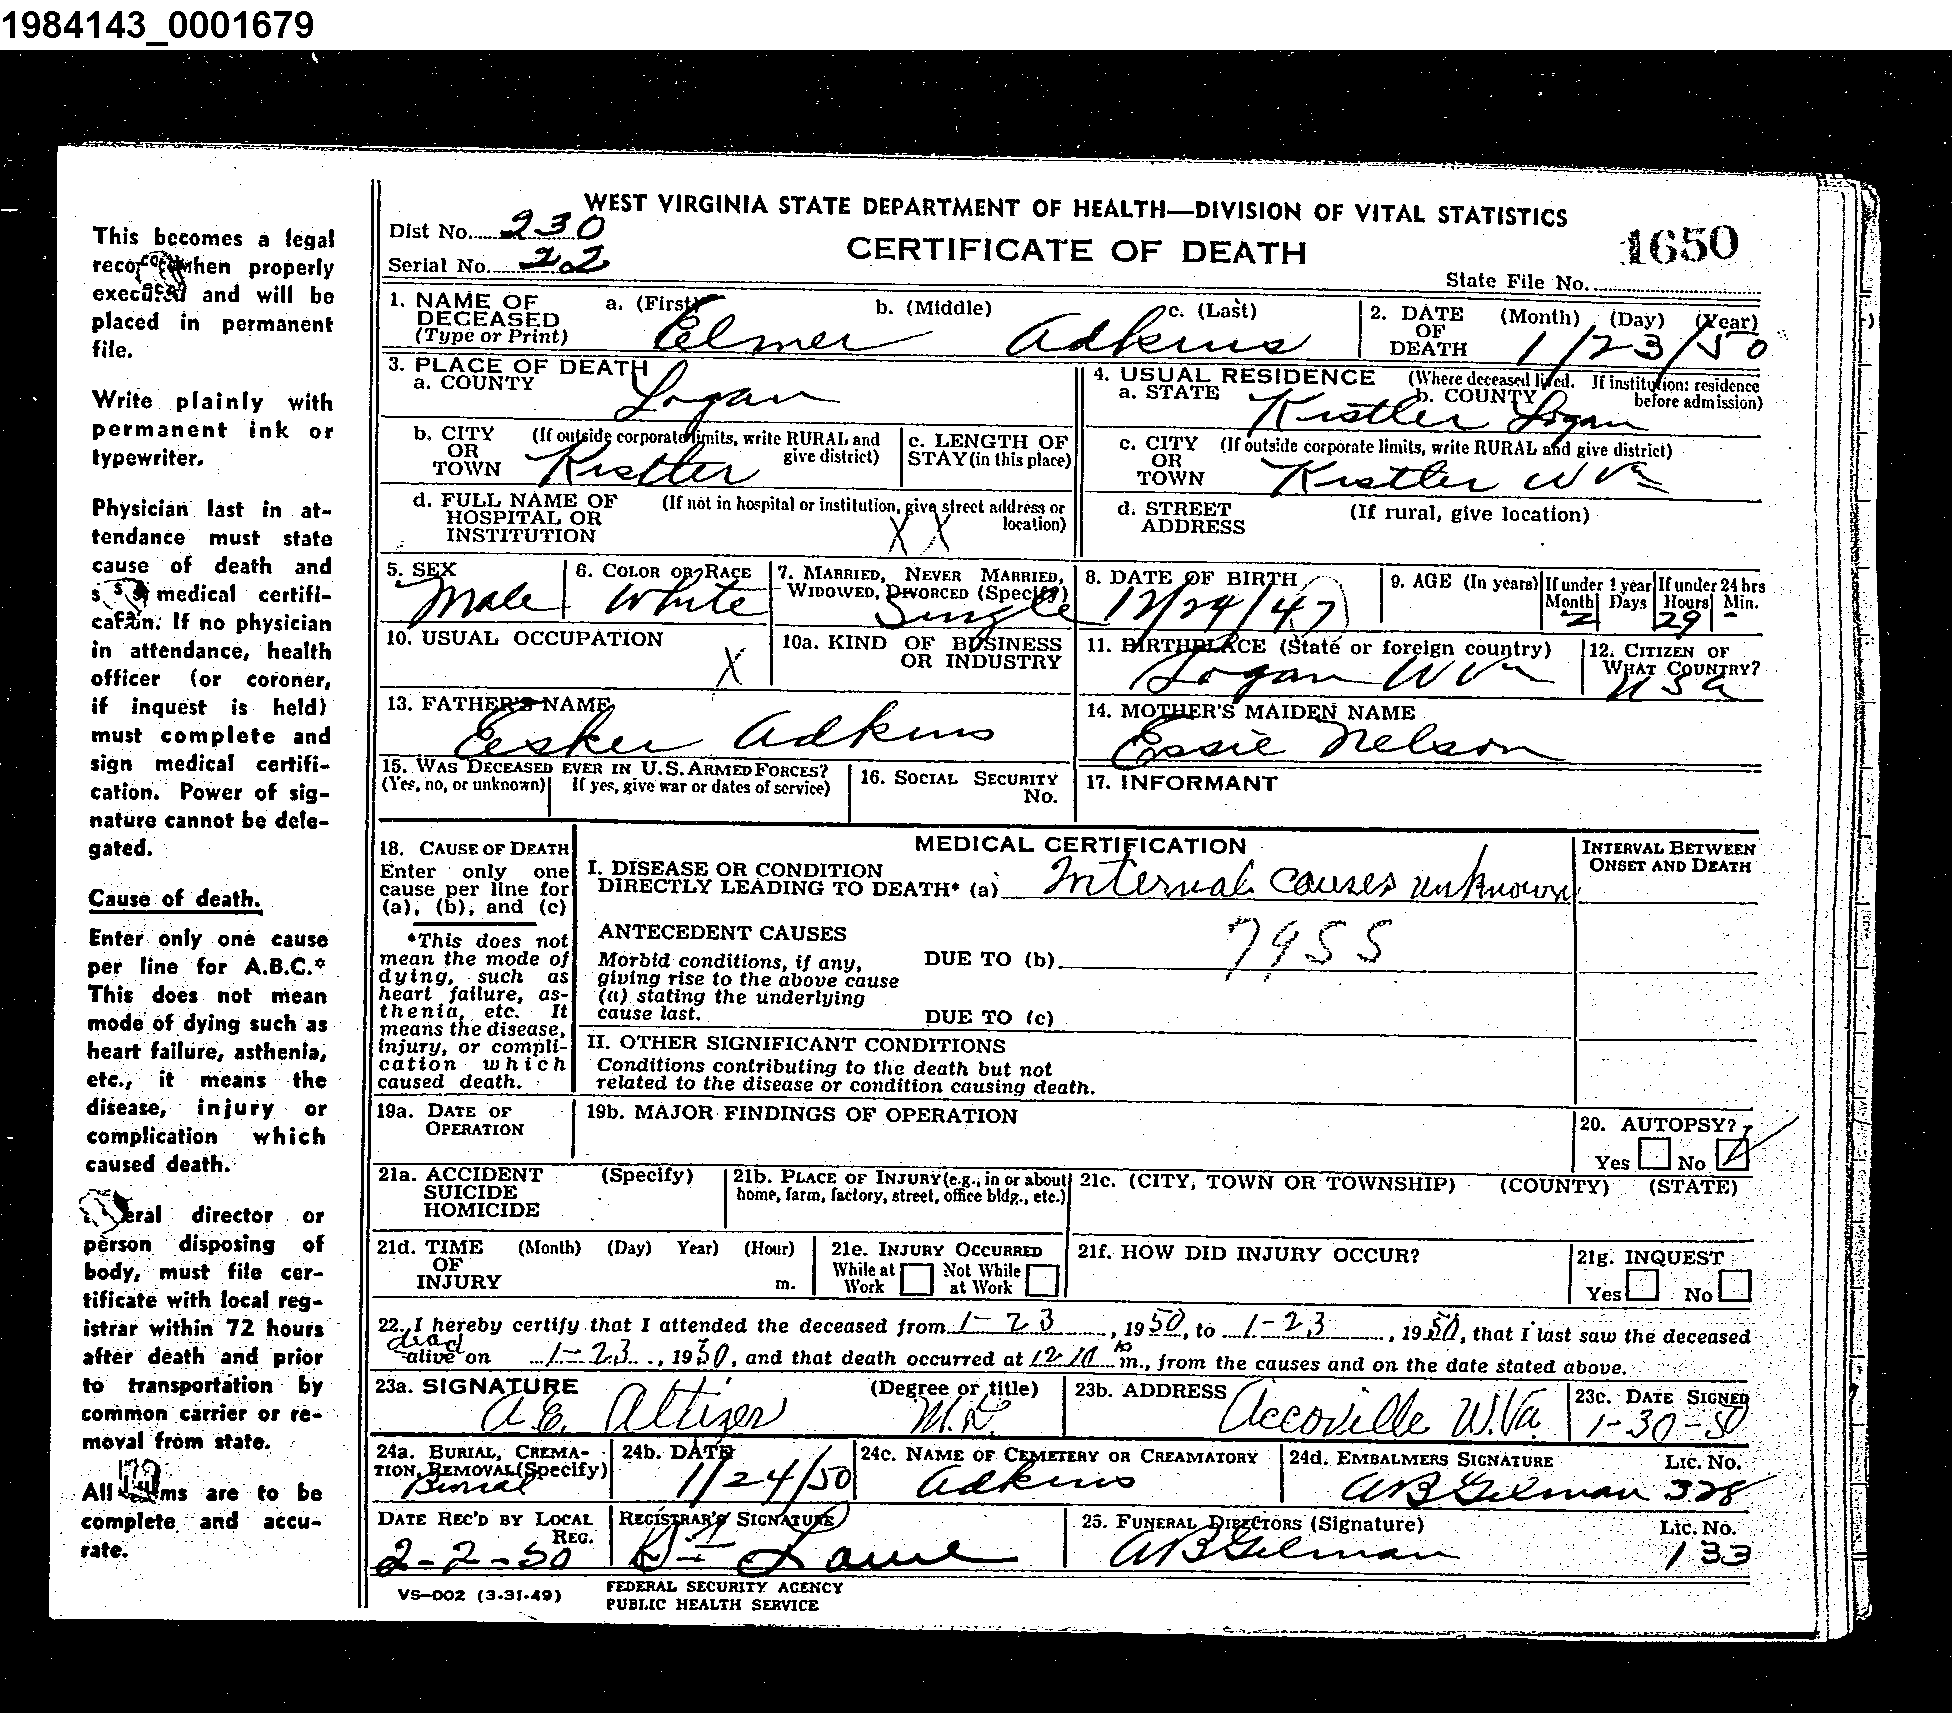 1984143_0001679
This becomes a legal
when properly
executed and will be
placed in permanent
file.
Write plainly with
permanent ink or
typewriter.
Physician last in at-
tendance must state
cause of death and
medical certifi-
If no physician
in attendance, health
officer (or coroner,
if inquest is held)
must complete and
sign medical certifi-
cation. Power of sig-
nature cannot be dele-
gated.
Cause of death.
Enter only one cause
per line for A.B.C.*
This does not mean
mode of dying such as
heart failure, asthenia,
etc., it means the
disease, injury or
complication which
caused death.
director or
person disposing of
body, must file cer-
tificate with local reg-
istrar within 72 hours
after death and prior
to transportation by
common carrier or re-
moval from state.
All are to be
complete and accu-
rate.
WEST VIRGINIA STATE DEPARTMENT OF HEALTH—DIVISION OF VITAL STATISTICS
Dist No. 230
CERTIFICATE OF DEATH
1650
Serial No. 22
State File No.
1. NAME OF DECEASED (Type or Print) a. (First) b. (Middle) c. (Last)
Elmer Adkins
2. DATE OF DEATH (Month) (Day) (Year)
1/23/50
3. PLACE OF DEATH
a. COUNTY Logan
4. USUAL RESIDENCE (Where deceased lived. If institution: residence before admission)
a. STATE b. COUNTY
Kistler Logan
b. CITY OR TOWN (If outside corporate limits, write RURAL and give district)
Kistler
c. LENGTH OF STAY (in this place)
c. CITY OR TOWN (If outside corporate limits, write RURAL and give district)
Kistler W Va
d. FULL NAME OF HOSPITAL OR INSTITUTION (If not in hospital or institution, give street address or location)
X X
d. STREET ADDRESS (If rural, give location)
5. SEX
Male
6. COLOR OR RACE
White
7. MARRIED, NEVER MARRIED, WIDOWED, DIVORCED (Specify)
Single
8. DATE OF BIRTH
12/24/47
9. AGE (In years) If under 1 year Month Days If under 24 hrs Hours Min.
2 29 -
10. USUAL OCCUPATION
X
10a. KIND OF BUSINESS OR INDUSTRY
11. BIRTHPLACE (State or foreign country)
Logan W Va
12. CITIZEN OF WHAT COUNTRY?
USA
13. FATHER'S NAME
Eesker Adkins
14. MOTHER'S MAIDEN NAME
Essie Nelson
15. WAS DECEASED EVER IN U.S. ARMED FORCES?
(Yes, no, or unknown) If yes, give war or dates of service)
16. SOCIAL SECURITY No.
17. INFORMANT
18. CAUSE OF DEATH
Enter only one
cause per line for
(a), (b), and (c)
*This does not
mean the mode of
dying, such as
heart failure, as-
thenia, etc. It
means the disease,
injury, or compli-
cation which
caused death.
MEDICAL CERTIFICATION
INTERVAL BETWEEN ONSET AND DEATH
I. DISEASE OR CONDITION
DIRECTLY LEADING TO DEATH* (a) Internal causes unknown
ANTECEDENT CAUSES
7955
Morbid conditions, if any,
giving rise to the above cause
(a) stating the underlying
cause last.
DUE TO (b)
DUE TO (c)
II. OTHER SIGNIFICANT CONDITIONS
Conditions contributing to the death but not
related to the disease or condition causing death.
19a. DATE OF OPERATION
19b. MAJOR FINDINGS OF OPERATION
20. AUTOPSY?
Yes No
21a. ACCIDENT SUICIDE HOMICIDE (Specify)
21b. PLACE OF INJURY (e.g., in or about home, farm, factory, street, office bldg., etc.)
21c. (CITY, TOWN OR TOWNSHIP) (COUNTY) (STATE)
21d. TIME OF INJURY (Month) (Day) Year) (Hour) m.
21e. INJURY OCCURRED
While at Work Not While at Work
21f. HOW DID INJURY OCCUR?
21g. INQUEST
Yes No
22. I hereby certify that I attended the deceased from 1-23, 1950, to 1-23, 1950, that I last saw the deceased
dead
alive on 1-23, 1950, and that death occurred at 12 10 m., from the causes and on the date stated above.
23a. SIGNATURE (Degree or title)
A.E. Altizer M.D.
23b. ADDRESS
Accoville W.Va.
23c. DATE SIGNED
1-30-50
24a. BURIAL, CREMA-
TION, REMOVAL (Specify)
Burial
24b. DATE
1/24/50
24c. NAME OF CEMETERY OR CREAMATORY
Adkins
24d. EMBALMERS SIGNATURE Lic. No.
AB Gilman 328
DATE REC'D BY LOCAL REG.
2-2-50
REGISTRAR'S SIGNATURE
25. FUNERAL DIRECTORS (Signature) Lic. No.
AB Gilman 133
VS-002 (3-31-49)
FEDERAL SECURITY AGENCY
PUBLIC HEALTH SERVICE